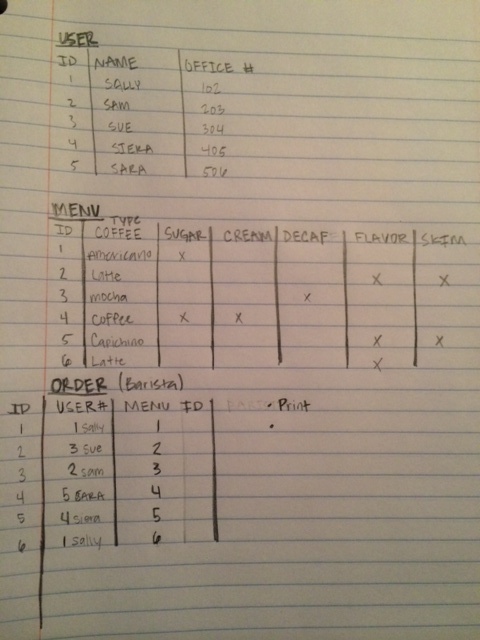 USER
ID NAME OFFICE #
1 SALLY 102
2 SAM 203
3 SUE 304
4 SIERA 405
5 SARA 506
MENU
ID TYPE COFFEE SUGAR CREAM DECAF FLAVOR SKIM
1 Americano X
2 Latte X X
3 mocha X
4 Coffee X X
5 Capichino X X
6 Latte X
ORDER (Barista)
ID USER# MENU ID Print
1 1 Sally 1
2 3 Sue 2
3 2 Sam 3
4 5 SARA 4
5 4 Siera 5
6 1 Sally 6